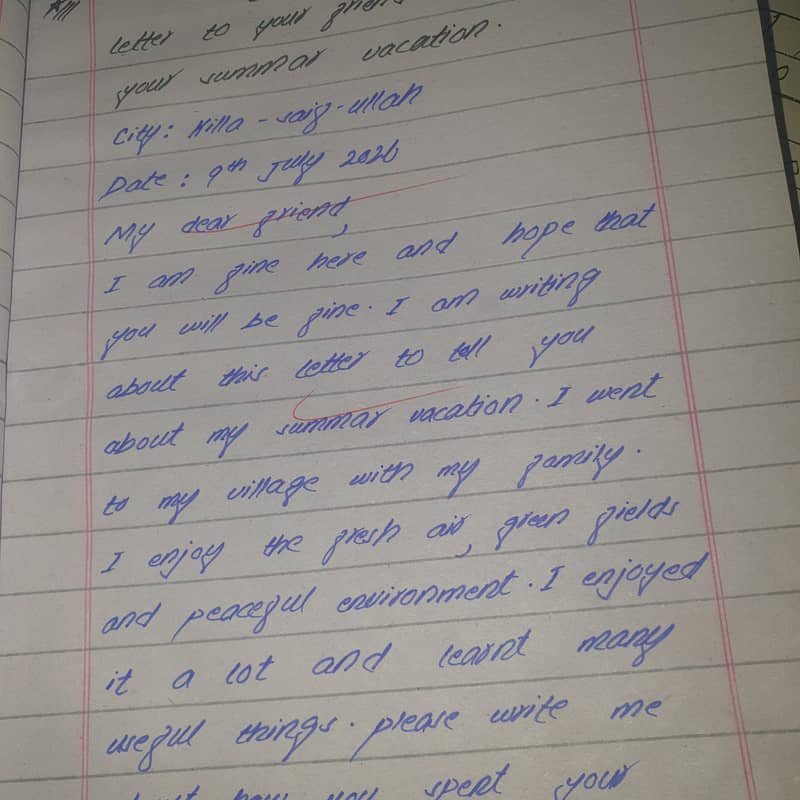 letter to your friend
your summar vacation.
City: Killa - saif - ullah
Date: 9th July 2026
My dear friend,
I am fine here and hope that
you will be fine. I am writing
about this letter to tell you
about my summar vacation. I went
to my village with my family.
I enjoy the fresh air, green fields
and peaceful environment. I enjoyed
it a lot and learnt many
useful things. please write me
how you spent your